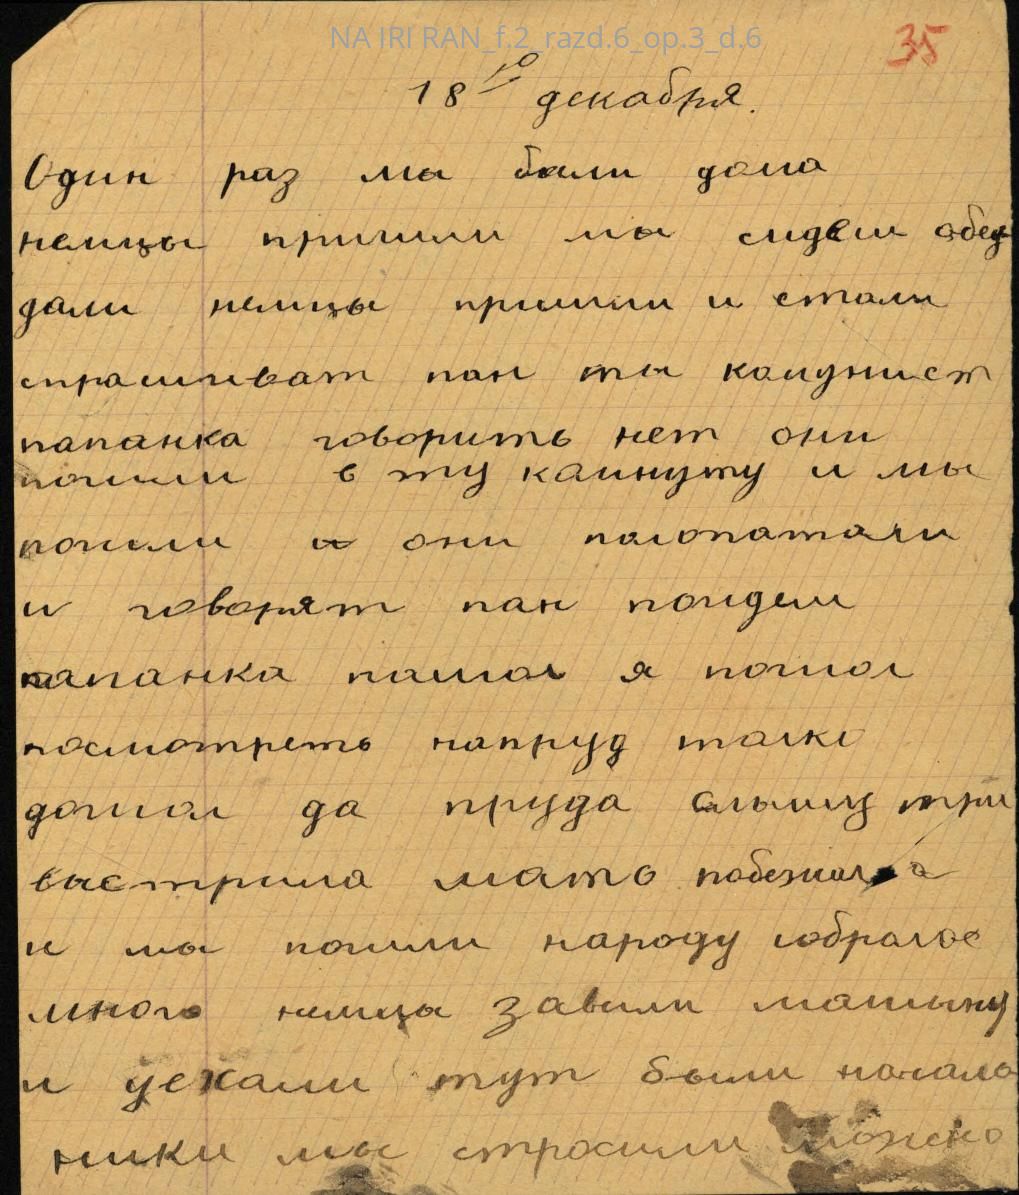 NA IRI RAN_f.2_razd.6_op.3_d.6
35
18го декабря.
Один раз мы были дома
немцы пришли мы сидели обед
дали немцы пришли и стали
спрашиват пан ты комунист
папанка говорить нет они
пошли в ту камнуту и мы
пошли и они полопатали
и говорят пан пойдем
папанка пашол я пошол
посмотреть напруд толко
дошол да пруда слышу три
выстрила мать побежала
и мы пошли народу собралос
много немцы завили машыну
и уехали тут были начала
ники мы спросили можно